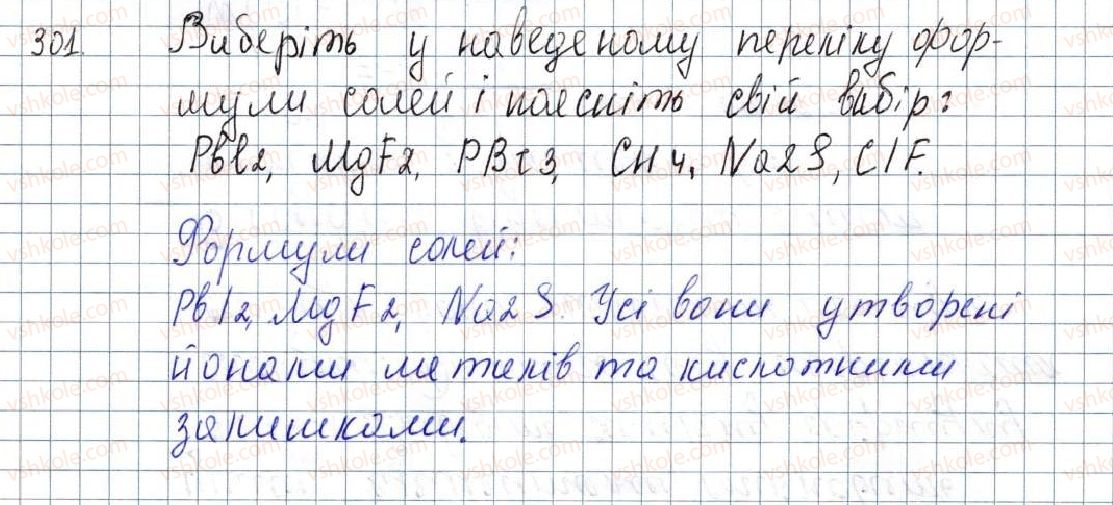 301. Виберіть у наведеному переліку фор-
мули солей і поясніть свій вибір:
PbI2, MgF2, PBr3, CH4, Na2S, ClF.
Формули солей:
PbI2, MgF2, Na2S. Усі вони утворені
йонами металів та кислотними
залишками.